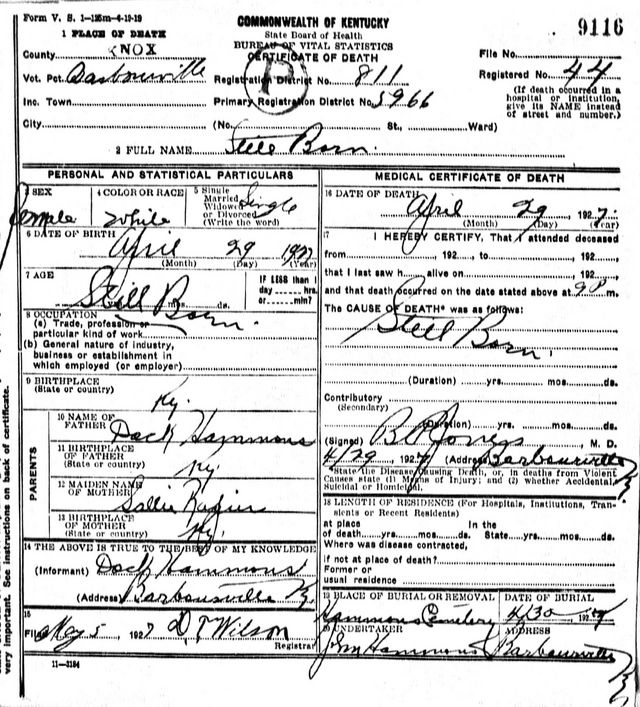 Form V. S. 1—125m—4-19-19
COMMONWEALTH OF KENTUCKY
State Board of Health
BUREAU OF VITAL STATISTICS
CERTIFICATE OF DEATH
9116
1 PLACE OF DEATH
County KNOX
Vot. Pct. Barbourville
Inc. Town
City
Registration District No. 811
Primary Registration District No. 5966
(No. St., Ward)
File No.
Registered No. 44
(If death occurred in a
hospital or institution,
give its NAME instead
of street and number.)
2 FULL NAME Still Born.
PERSONAL AND STATISTICAL PARTICULARS
3 SEX
Female
4 COLOR OR RACE
White
5 Single
Married
Widowed
or Divorced
(Write the word)
Single
6 DATE OF BIRTH
April 29 1927
(Month) (Day) (Year)
7 AGE
Still Born.
mos. ds.
IF LESS than 1
day hrs.
or min?
8 OCCUPATION
(a) Trade, profession or
particular kind of work
(b) General nature of industry,
business or establishment in
which employed (or employer)
9 BIRTHPLACE
(State or country)
Ky.
PARENTS
10 NAME OF
FATHER
Dock Hammons
11 BIRTHPLACE
OF FATHER
(State or country)
Ky.
12 MAIDEN NAME
OF MOTHER
Sallie
13 BIRTHPLACE
OF MOTHER
(State or country)
Ky.
14 THE ABOVE IS TRUE TO THE BEST OF MY KNOWLEDGE
(Informant) Dock Hammons
(Address) Barbourville Ky.
15
Filed May 5 1927 D T Wilson
Registrar
11—3184
MEDICAL CERTIFICATE OF DEATH
16 DATE OF DEATH
April 29, 1927.
(Month) (Day) (Year)
17 I HEREBY CERTIFY, That I attended deceased
from 192 , to , 192
that I last saw h alive on , 192
and that death occurred on the date stated above at 9P m.
The CAUSE OF DEATH* was as follows:
Still Born.
(Duration) yrs. mos. ds.
Contributory
(Secondary)
(Duration) yrs. mos. ds.
(Signed) B C Jones M. D.
4/29 1927 (Address) Barbourville Ky
*State the Disease Causing Death, or, in deaths from Violent
Causes state (1) Means of Injury; and (2) whether Accidental,
Suicidal or Homicidal.
18 LENGTH OF RESIDENCE (For Hospitals, Institutions, Tran-
sients or Recent Residents)
at place In the
of death yrs. mos. ds. State yrs. mos. ds.
Where was disease contracted,
if not at place of death?
Former or
usual residence
19 PLACE OF BURIAL OR REMOVAL
Hammons Cemetery
DATE OF BURIAL
4/30 1927
20 UNDERTAKER
Jim Hammons
ADDRESS
Barbourville Ky
very important. See instructions on back of certificate.